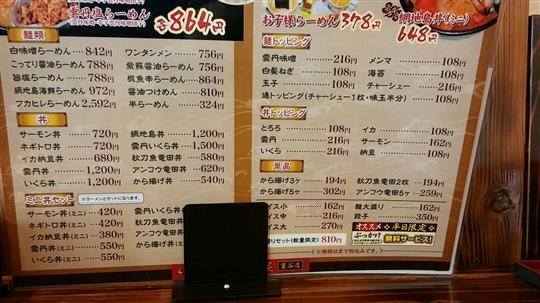 雲丹塩らーめん
各864円
麺類
白味噌らーめん 842円
こってり醤油らーめん 756円
旨塩らーめん 756円
網地島海鮮らーめん 972円
フカヒレらーめん 2,592円
ワンタンメン 756円
紫蘇醤油らーめん 756円
帆魚辛らーめん 864円
醤油つけめん 810円
半らーめん 324円
丼
サーモン丼 720円
ネギトロ丼 720円
イカ納豆丼 680円
雲丹丼 1,200円
いくら丼 1,200円
網地島丼 1,200円
雲丹いくら丼 1,500円
秋刀魚竜田丼 580円
アンコウ竜田丼 620円
から揚げ丼 540円
ミニ丼セット
※ラーメンとセットになります。
サーモン丼(ミニ) 420円
ネギトロ丼(ミニ) 420円
イカ納豆丼(ミニ) 380円
雲丹丼(ミニ) 550円
いくら丼(ミニ) 550円
網地島丼
雲丹いくら
秋刀魚竜田
アンコウ
から揚げ丼
お子様らーめん 378円
網地島丼(ミニ)
各648円
麺トッピング
雲丹味噌 216円
白髪ねぎ 108円
玉子 108円
メンマ 108円
海苔 108円
チャーシュー 216円
通トッピング(チャーシュー1枚・味玉半分) 108円
丼トッピング
とろろ 108円
雲丹 216円
いくら 216円
イカ 108円
サーモン 162円
納豆 108円
単品
から揚げ3ヶ 194円
から揚げ5ヶ 302円
イス小 162円
イス中 216円
イス大 270円
秋刀魚竜田2枚 194円
アンコウ竜田5ヶ 259円
麺大盛り 162円
餃子 350円
セット(数量限定) 810円
オススメ
平日限定
ぶっかけ
無料サービス!
※価格は全て税込みです。
富谷店